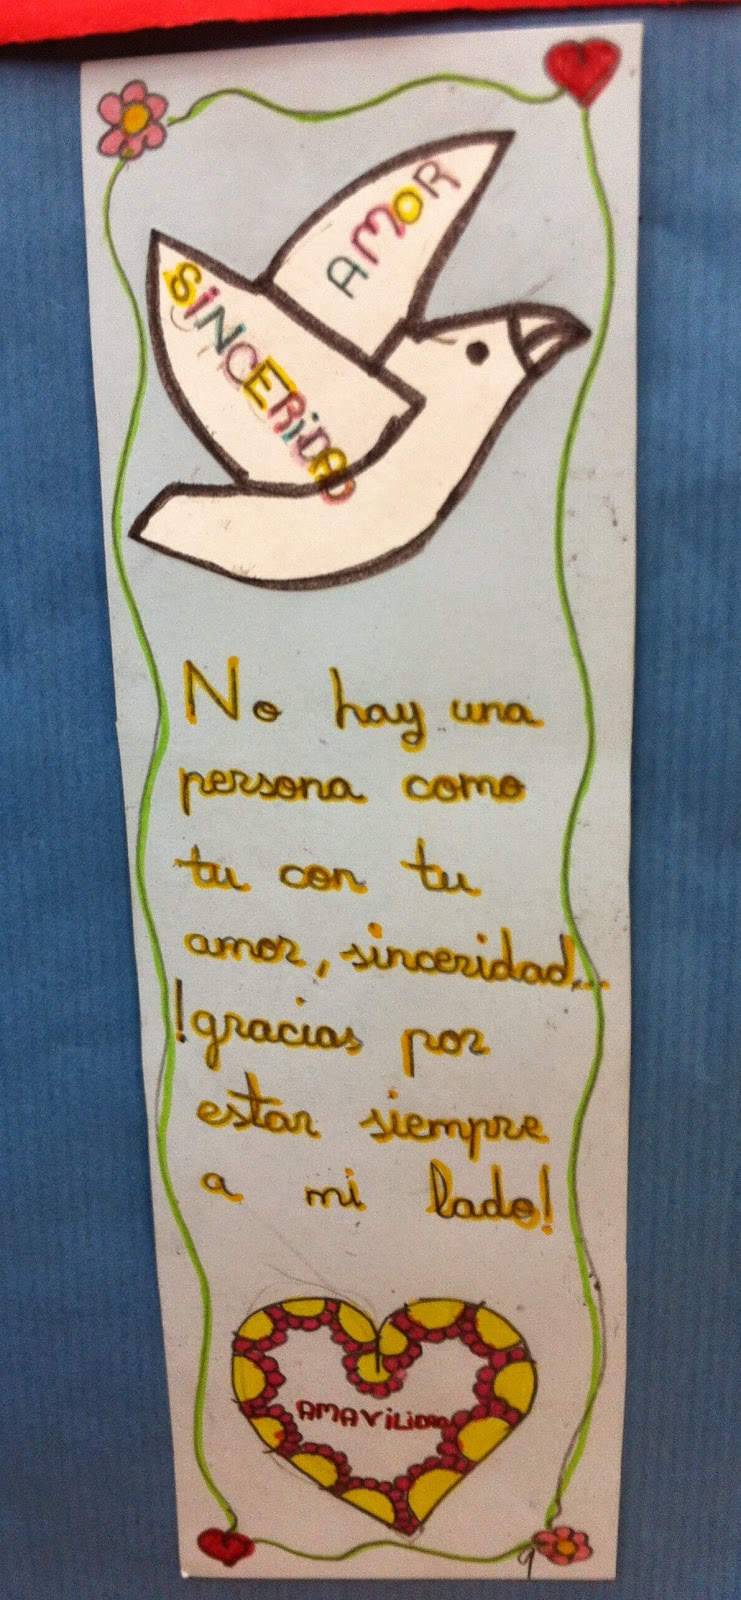 AMOR
SINCERIDAD
No hay una
persona como
tu con tu
amor, sinceridad...
!gracias por
estar siempre
a mi lado!
AMAVILIDAD